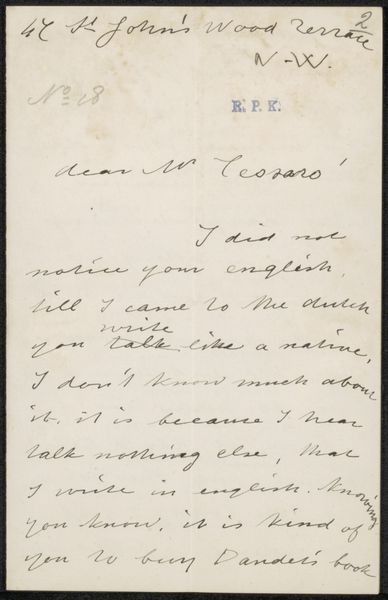 47 St John's Wood Terrace
2
N-W.
No 18
R. P. K.
dear Mr Tessaro
I did not
notice your english,
till I came to the dutch
write
you talk like a native,
I don't know much about
it, it is because I hear
talk nothing else, that
I write in english. Knowing
you know, it is kind of
you to buy Daudet's book